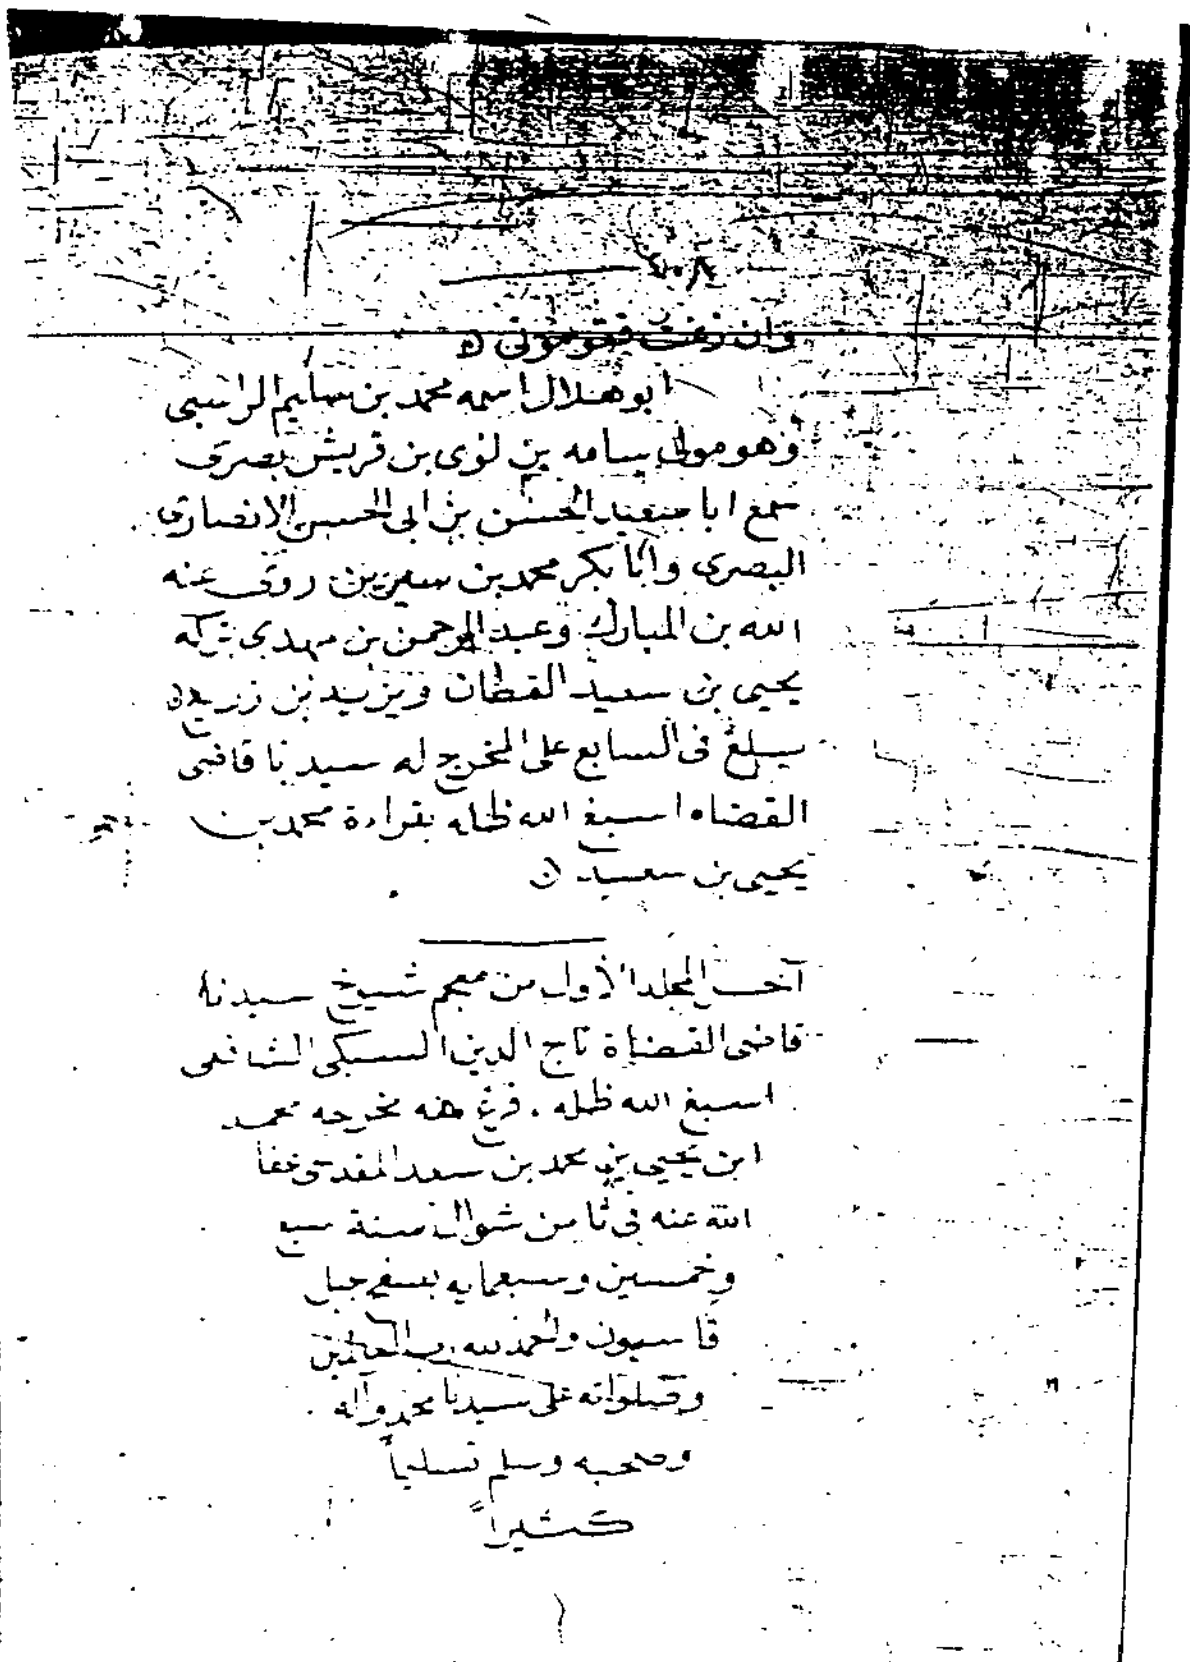 وان زغت فقومونى
ابو هلال اسمه محمد بن سليم الراسبى
وهو مولى بسامه بن لؤى بن قريش بصرى
سمع ابا سعيد الحسن بن ابى الحسن الانصارى
البصرى وابا بكر محمد بن سيرين روى عنه
الله بن المبارك وعبد الرحمن بن مهدى تركه
يحيى بن سعيد القطان ويزيد بن زريع
بلغ فى السابع على المخرج له سيدنا قاضى
القضاه اسبغ الله ظله بقراءة محمد بن
يحيى بن سعيد
آخر المجلد الأول من معجم شيخ سيدنا
قاضى القضاة تاج الدين السبكى الشافعى
اسبغ الله ظله . فرغ منه مخرجه محمد
ابن يحيى بن محمد بن سعد المقدسى عفا
الله عنه فى ثامن شوال سنة سبع
وخمسين وسبعمايه بسفح جبل
قاسيون والحمد لله رب العالمين
وصلواته على سيدنا محمد وآله
وصحبه وسلم تسليماً
كثيراً